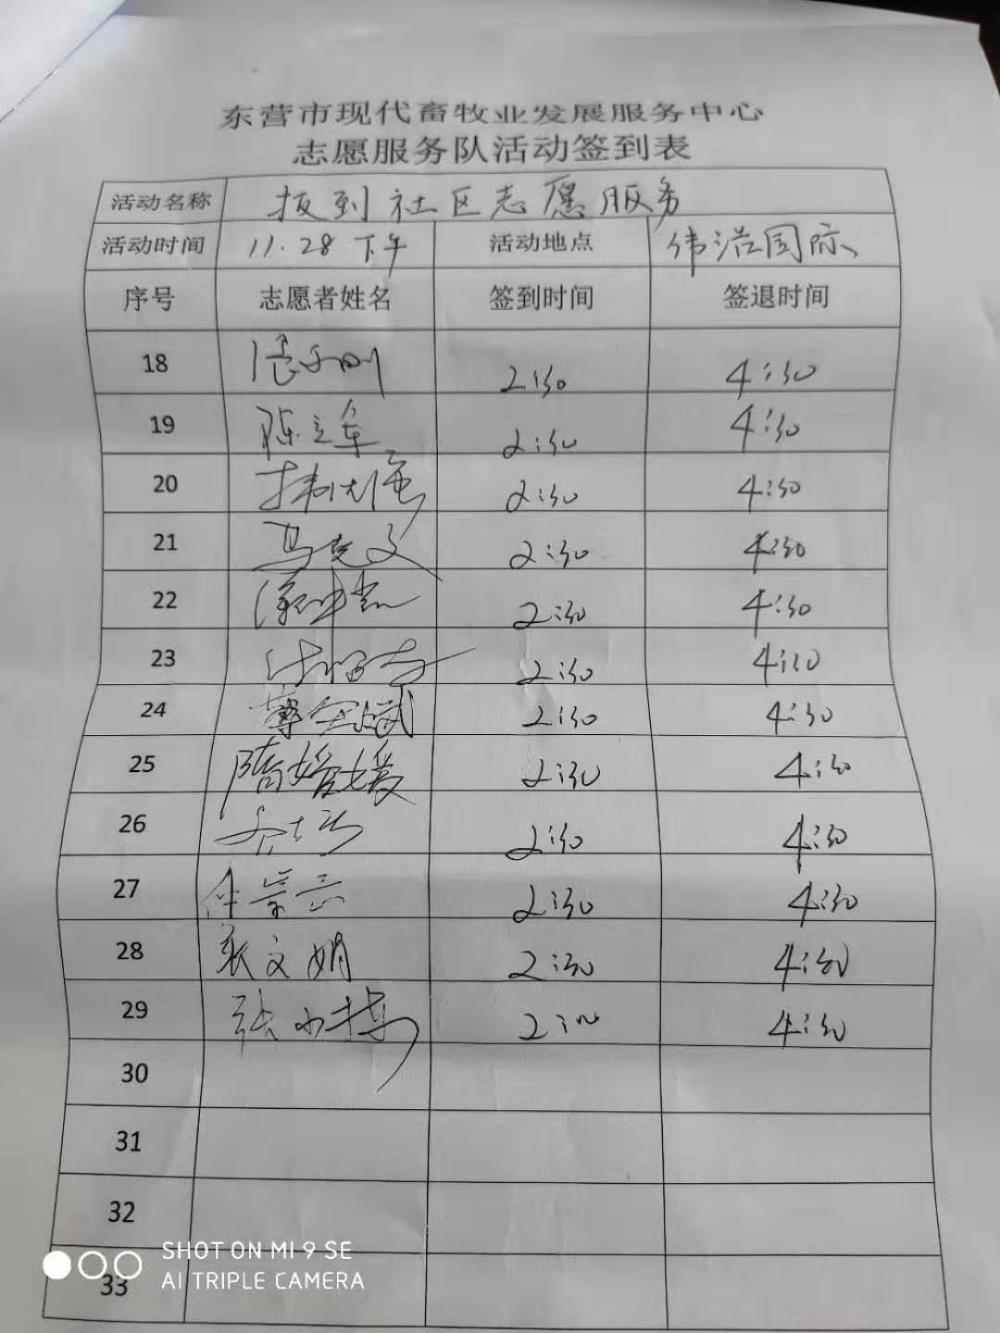 东营市现代畜牧业发展服务中心
志愿服务队活动签到表
活动名称 报到社区志愿服务
活动时间 11.28 下午 活动地点 伟浩国际
序号 志愿者姓名 签到时间 签退时间
18 2:30 4:30
19 陈立军 2:30 4:30
20 2:30 4:30
21 马克文 2:30 4:30
22 2:30 4:30
23 2:30 4:30
24 2:30 4:30
25 2:30 4:30
26 2:30 4:30
27 2:30 4:30
28 张文娟 2:30 4:30
29 张 2:30 4:30
30
31
32
33
SHOT ON MI 9 SE
AI TRIPLE CAMERA